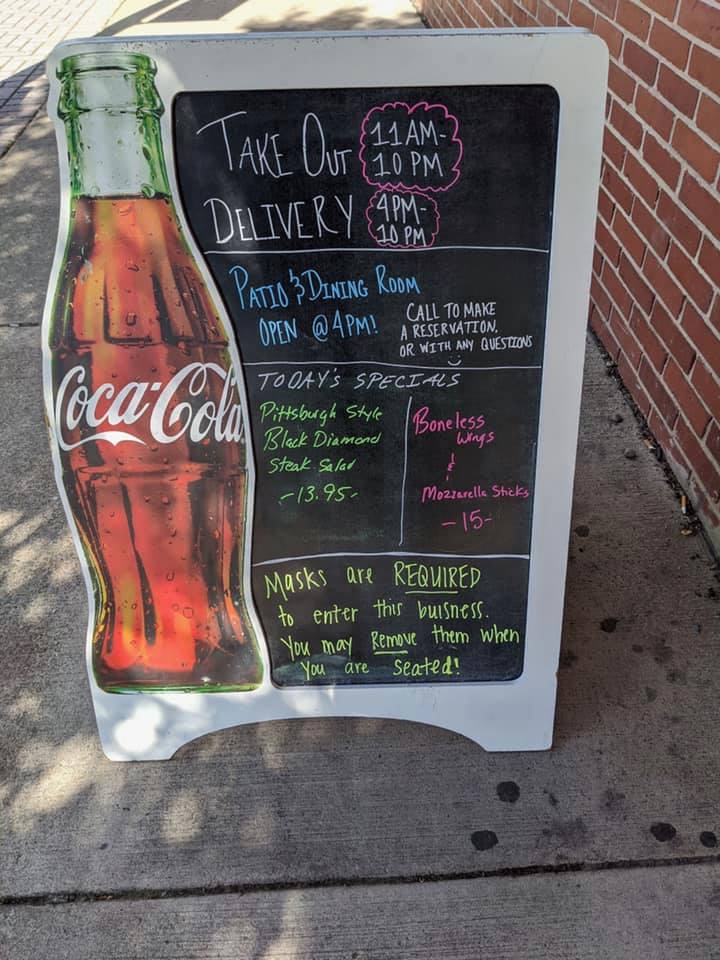 TAKE OUT 11AM-
10 PM
DELIVERY 4PM-
10 PM
PATIO & DINING ROOM
OPEN @ 4PM!
CALL TO MAKE
A RESERVATION,
OR WITH ANY QUESTIONS
Coca-Cola
TODAY'S SPECIALS
Pittsburgh Style
Black Diamond
Steak Salad
-13.95-
Boneless
Wings
&
Mozzarella Sticks
-15-
MASKS are REQUIRED
to enter this buisness.
You may Remove them when
You are Seated!